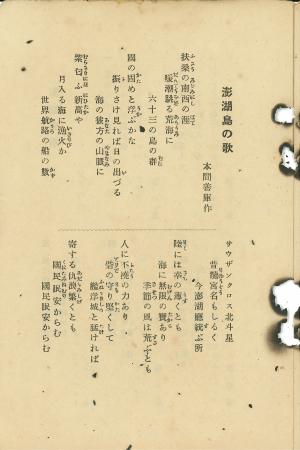 澎湖島の歌
本間善庫作
扶桑の南西の涯
暖潮騒る荒海に
六十三の島の群
國の固めと浮ぶかな
振りさけ見れば日の出づる
海の彼方の山脈に
紫匂ふ新高や
月入る海に漁火か
世界航路の船の
サウザンクロス北斗星
昔
宮名もしるく
今澎湖廳統ぶ所
陸には幸の薄くとも
海に無限の寶あり
季節の風は荒ぶとも
人に不撓の力あり
砦の守り堅くして
艦浮城と猛ければ
寄する仇浪繁くとも
國民民安からむ
國民民安からむ